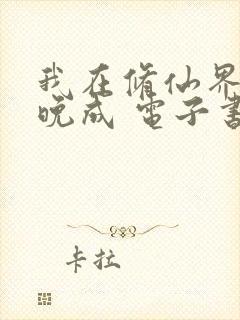 我在修仙界
晚成 電子書
卡拉